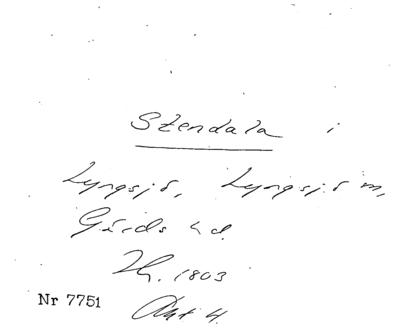 Stendala i
Lyngsjö, Lyngsjö m,
Gärds hd.
Th. 1803
Nr 7751 Akt 4.